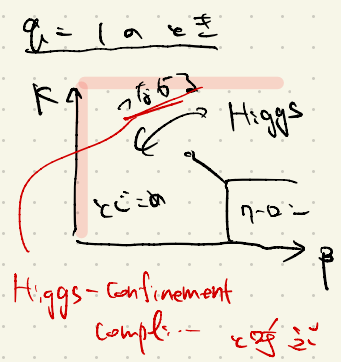 q = 1 のとき
K
つながる
Higgs
とじこめ
クーロン
β
Higgs-Confinement
compli... と呼ぶ